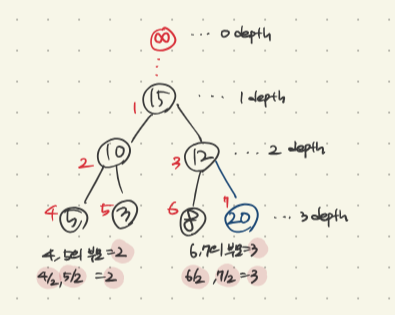 ∞ ... 0 depth
1 15 ... 1 depth
2 10 3 12 ... 2 depth
4 5 5 3 6 8 7 20 ... 3 depth
4, 5의 부모=2 6,7의 부모=3
4/2, 5/2 =2 6/2, 7/2 =3